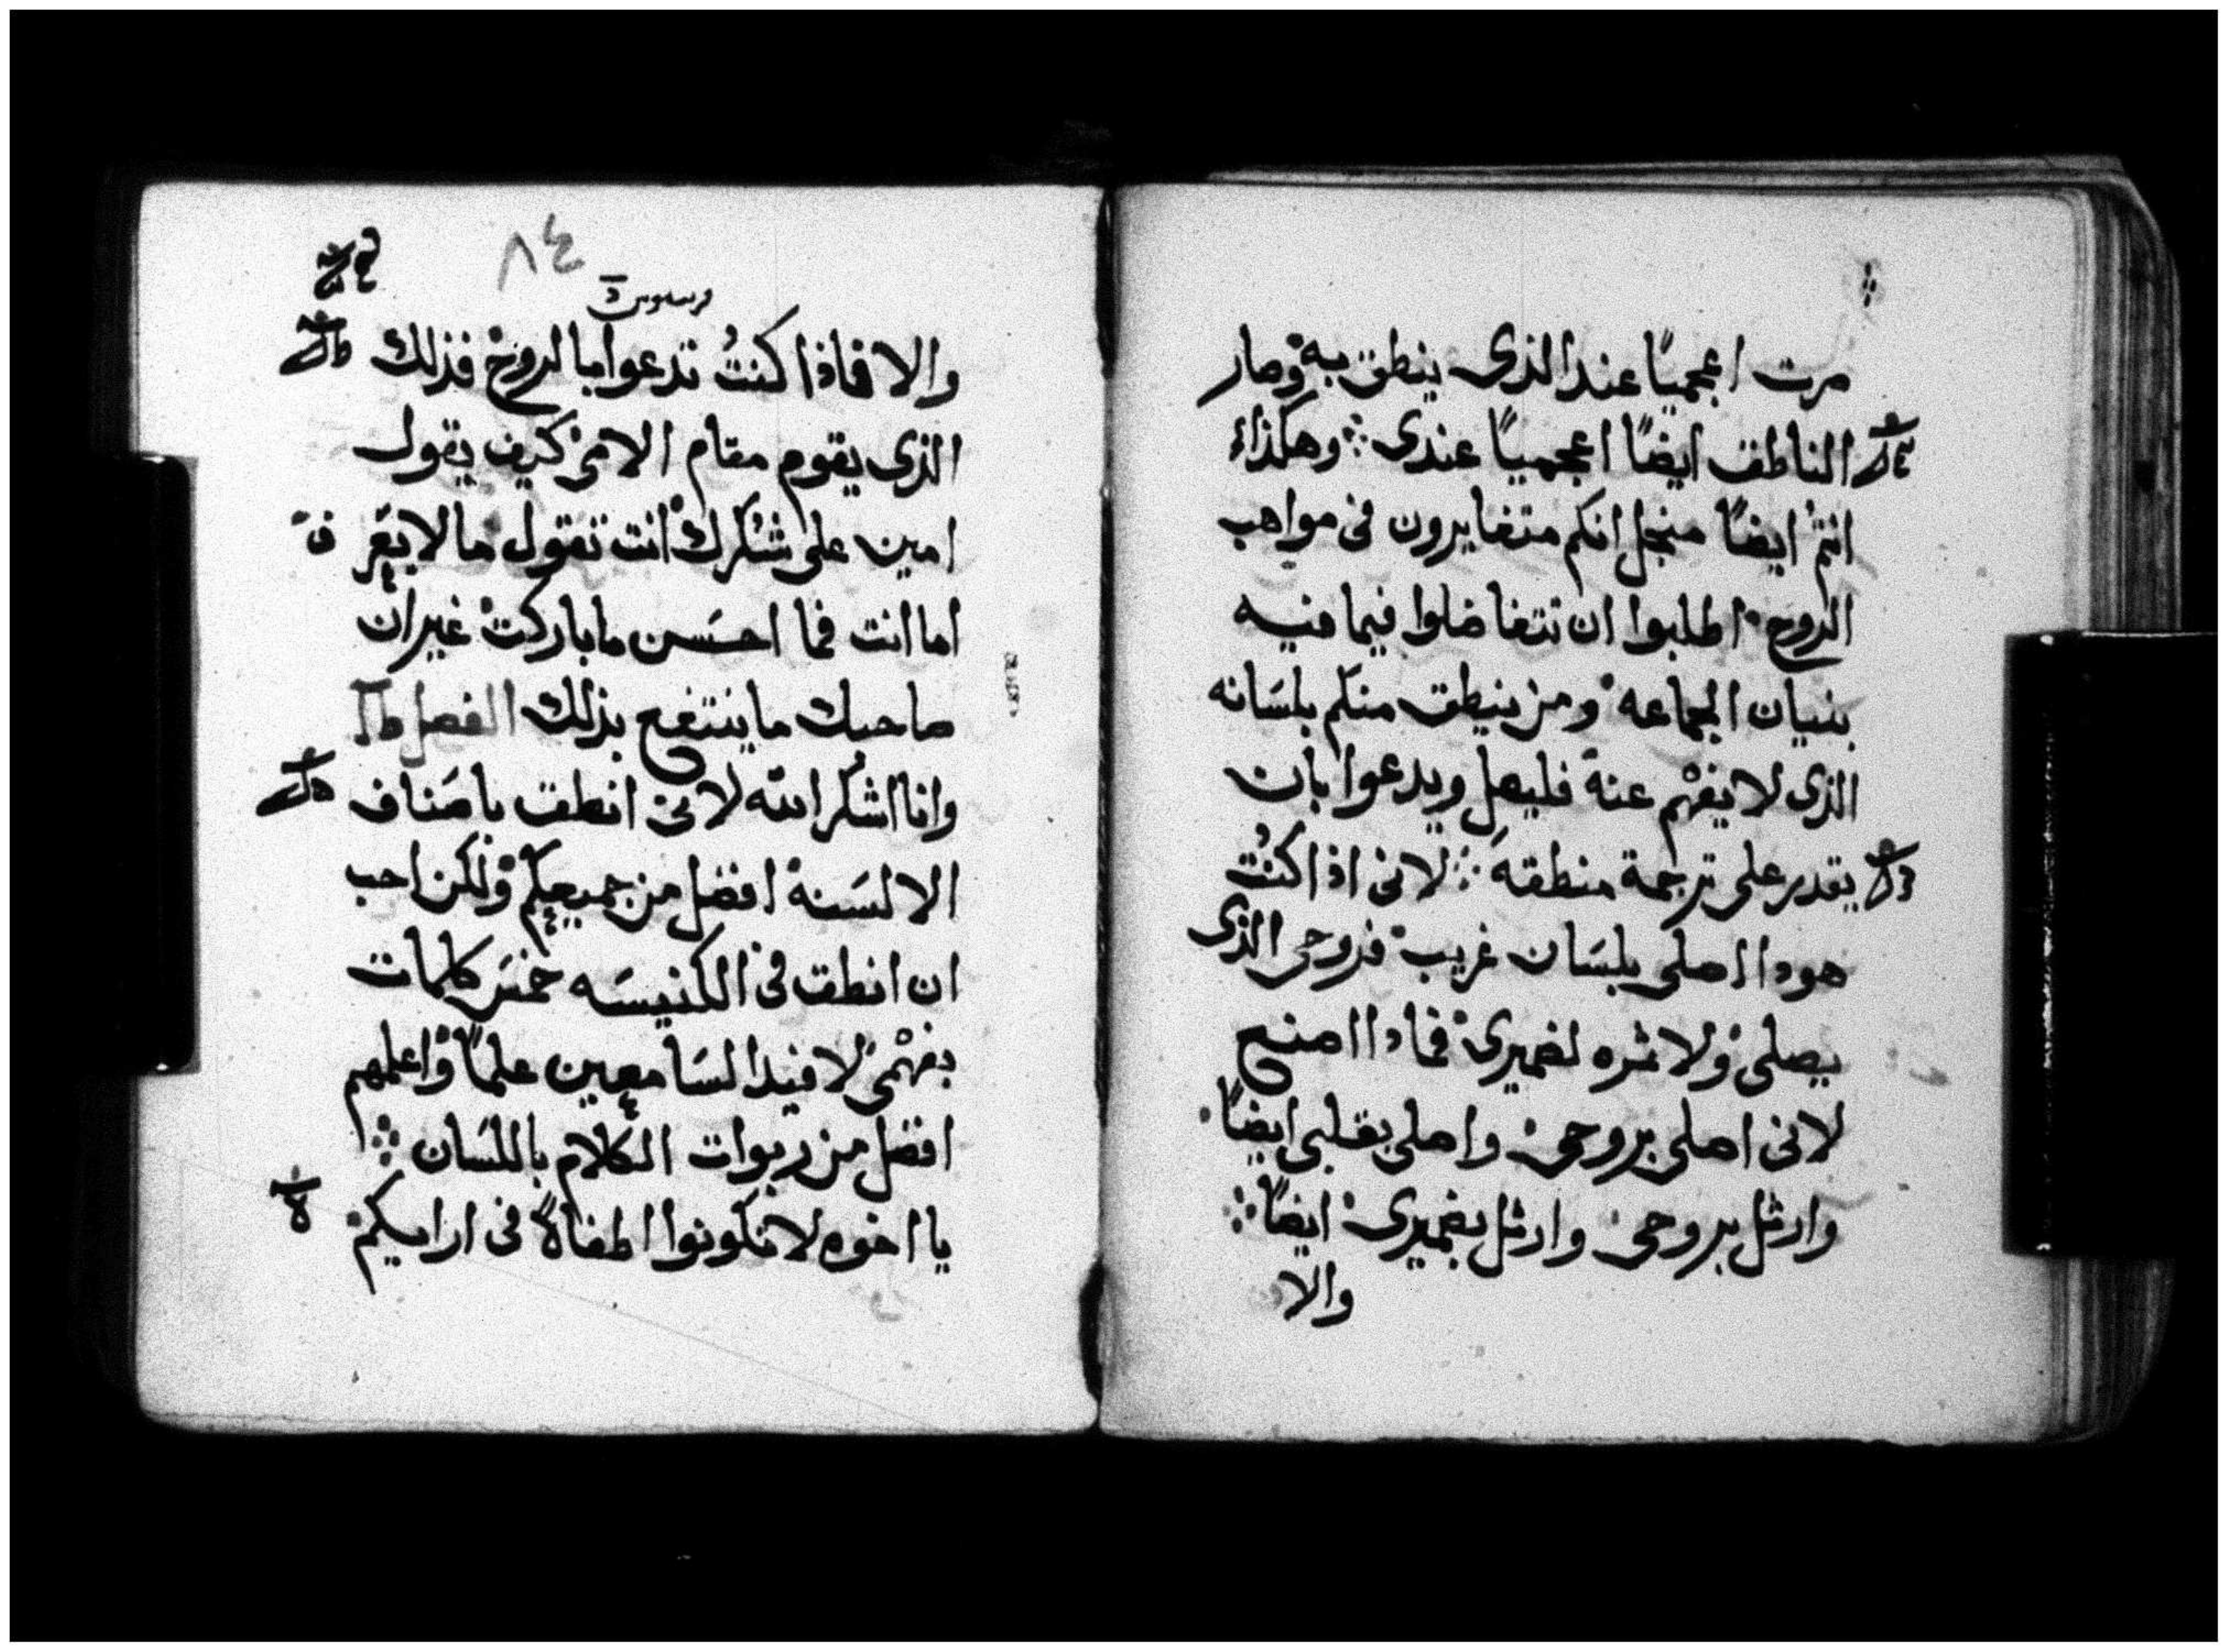 صرت اعجميًا عند الذى ينطق به وصار
الناطق ايضًا اعجميًا عندى ܀ وهكذاء
انتم ايضًا منجل انكم متغايرون فى مواهب
الروح اطلبوا ان تتفاضلوا فيما فيه
بنيان الجماعه ومن ينطق منكم بلسَانه
الذى لا يفهْم عنه فليصل ويدعوا بان
يقدر على ترجمة منطقه ܀ لانى اذا كنتُ
هودا اصلى بلسَان غريب فروحى الذى
يصلى ولا ثمره لضميرى فمادا اصنع
لانى اصلى بروحى واصلى بقلبى ايضًا
وارتل بروحى وارتل بضميرى ايضًا ܀
والا
٨٤
والا فاذا كنتُ تدعوا بالروح فذلك
الذى يقوم مقام الامى كيف يقول
امين على شكرك انت تقول ما لا يعَرفَ
اما انت فما احسَن ما باركت غير ان
صاحبك ما ينتفع بذلك الفصل
وانا اشكر الله لانى انطق باصَناف
الالسَنة افضل من جميعكم ولكن احب
ان انطق فى الكنيسَه خمسَ كلمات
بفهْمى لافيد السَامعين علمًا واعلمهم
افضل من ربوات الكلام باللسَان ܀
يا اخوه لا تكونوا اطفاة فى ارايكم